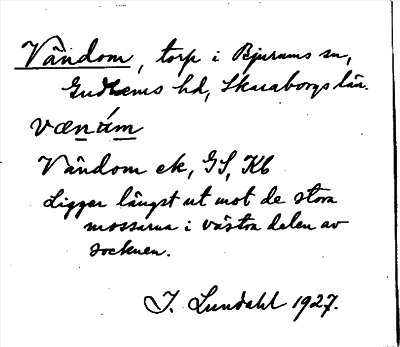 Vändom, torp i Bjurums sn,
Gudhems hd, Skaraborgs län.
væ̱ṉám̱
Vändom ek, GS, Kb
Ligger längst ut mot de stora
mossarna i västra delen av
socknen.
I. Lundahl 1927.